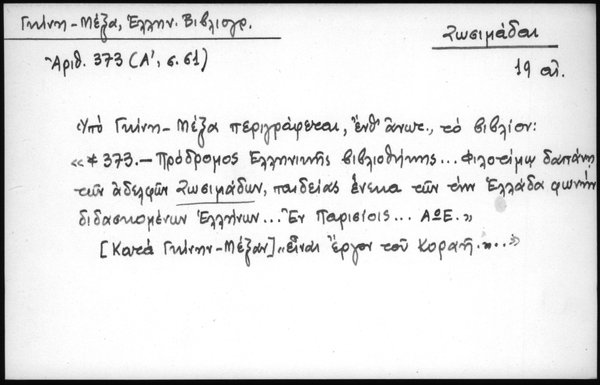 Γκίνη-Μέξα, Ἑλλην. Βιβλιογρ.
Ζωσιμάδαι
Ἀριθ. 373 (Α', σ. 61)
19 αἰ.
Ὑπό Γκίνη-Μέξα περιγράφεται, ἔνθ' ἄνωτ., τό βιβλίον:
«*373.— Πρόδρομος Ἑλληνικῆς βιβλιοθήκης... Φιλοτίμῳ δαπάνῃ
τῶν ἀδελφῶν Ζωσιμάδων, παιδείας ἕνεκα τῶν τήν Ἑλλάδα φωνήν
διδασκομένων Ἑλλήνων... Ἐν Παρισίοις... ΑΩΕ.»
[Κατά Γκίνην-Μέξαν] «εἶναι ἔργον τοῦ Κοραῆ...»